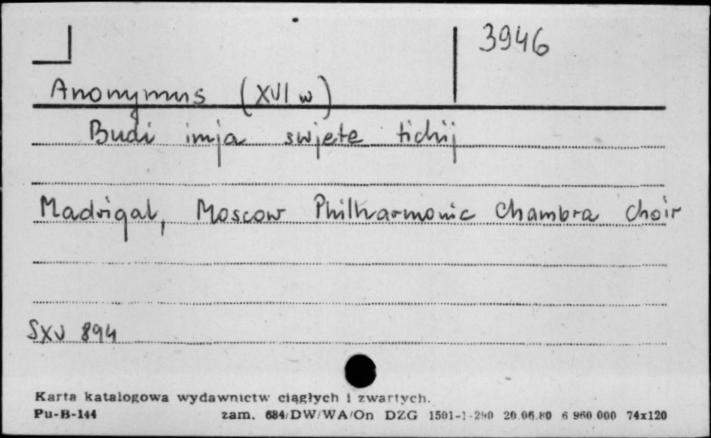 3946
Anonymus (XVI w)
Budi imja swjete tichij
Madrigal, Moscow Philharmonic Chambra choir
SXV 894
Karta katalogowa wydawnictw ciągłych i zwartych.
Pu-B-144 zam. 684/DW/WA/On DZG 1501-1-290 20.06.80 6 960 000 74x120